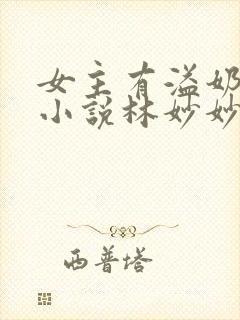 女主有溢奶
小说林妙妙
西普塔